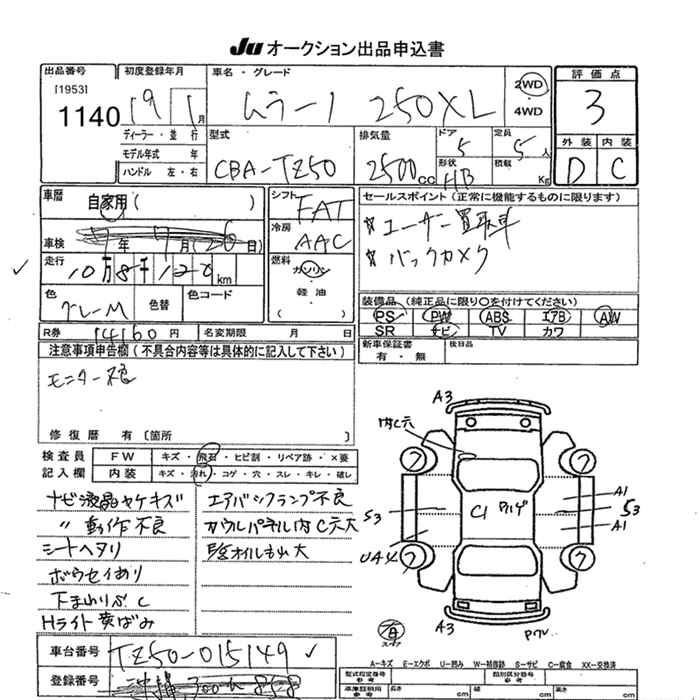 JU オークション出品申込書
出品番号 初度登録年月 車名・グレード 2WD 評価点
[1953] 4WD
1140 19年 1月 ムラーノ 250XL 3
ディーラー・並行 型式 排気量 ドア 5 定員 5人 外装 内装
モデル年式 年 形状 HB 積載 Kg D C
ハンドル 左・右 CBA-TZ50 2500cc
車歴 自家用( ) シフト FAT セールスポイント(正常に機能するものに限ります)
車検 7年 7月(26日) 冷房 AAC ☆ユーザー買取車
走行 10万8千122km 燃料 ガソリン ☆バックカメラ
・
軽油
色 グレーM 色替 色コード 装備品(純正品に限り○を付けてください)
PS PW ABS エアB AW
R券 14160円 名変期限 月 日 SR ナビ TV カワ
注意事項申告欄(不具合内容等は具体的に記入して下さい) 新車保証書 有・無 後日品
モニター不良
修復歴 有〔箇所 〕
検査員 FW キズ・飛石・ヒビ割・リペア跡・×要
記入欄 内装 キズ・汚れ・コゲ・穴・スレ・キレ・破し
ナビ液晶ヤケキズ エアバッグランプ不良
〃 動作不良 カウルパネル内C穴大
シートヘタリ 陸オイルもれ大
ボウセイあり
下まわりサビC
Hライト黄ばみ
A3
内C穴
A1
S3 C1 アルゲ S3
A1
U4
有
A3 アワ
車台番号 TZ50-015149
登録番号 沖縄 300 858
A-キズ E-エクボ U-凹み W-補修跡 S-サビ C-腐食 XX-交換済
型式指定番号 類別区分番号
車庫証明用参考 長さ cm 幅 cm 高さ cm